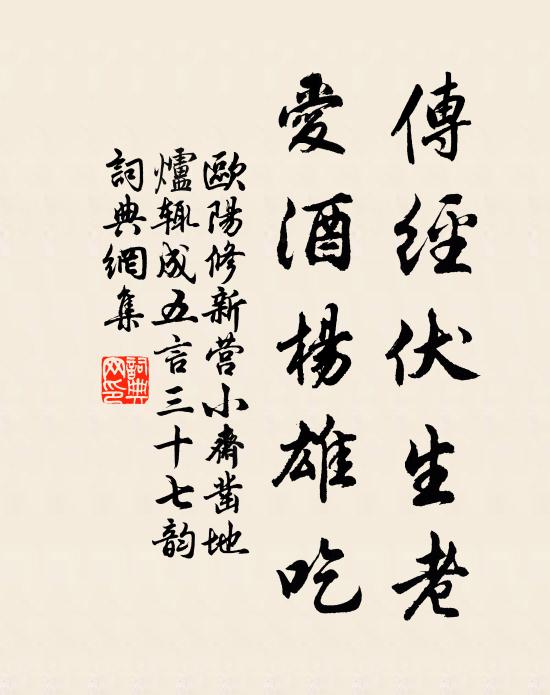 傳經伏生老
愛酒楊雄吃
歐陽修新营小齋凿地
爐辄成五言三十七韵
詞典網集
詞典網印